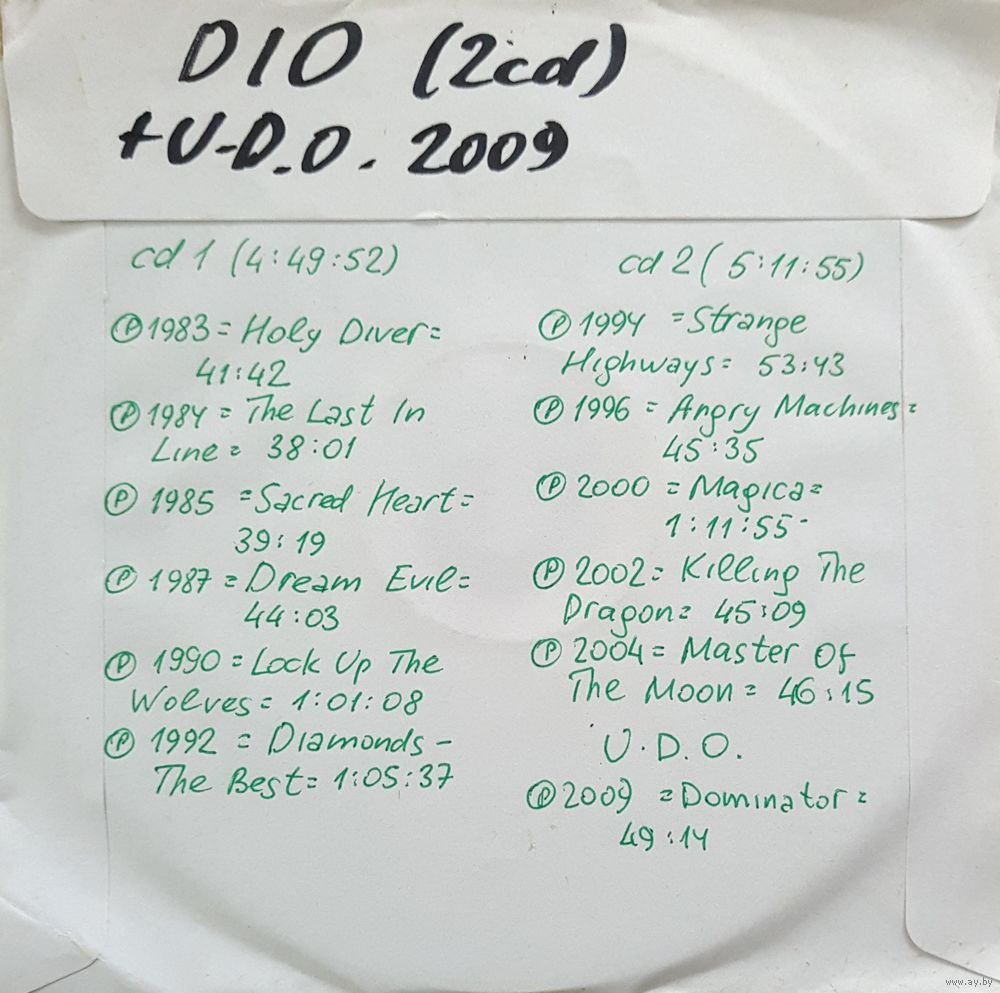 DIO (2cd)
+ U-D.O. 2009
cd 1 (4:49:52)
Ⓟ 1983 = Holy Diver =
41:42
Ⓟ 1984 = The Last In
Line = 38:01
Ⓟ 1985 = Sacred Heart =
39:19
Ⓟ 1987 = Dream Evil =
44:03
Ⓟ 1990 = Lock Up The
Wolves = 1:01:08
Ⓟ 1992 = Diamonds -
The Best = 1:05:37
cd 2 (5:11:55)
Ⓟ 1994 = Strange
Highways = 53:43
Ⓟ 1996 = Angry Machines =
45:35
Ⓟ 2000 = Magica =
1:11:55
Ⓟ 2002 = Killing The
Dragon = 45:09
Ⓟ 2004 = Master Of
The Moon = 46:15
U.D.O.
Ⓟ 2009 = Dominator =
49:14
www.ay.by